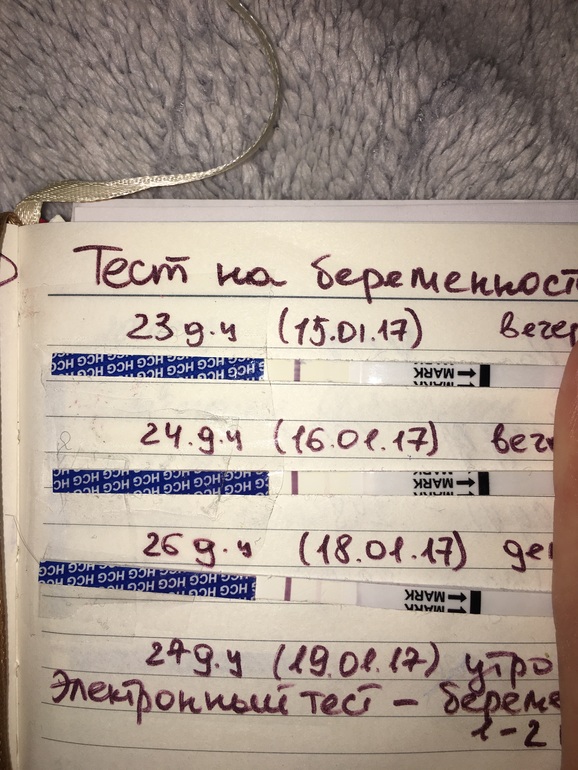 Тест на беременност
23 д.ц (15.01.17) вечер
HCG HCG HCG HCG HCG HCG HCG
MARK
24.д.ц (16.01.17) веч
HCG HCG HCG HCG HCG HCG HCG
MARK
26 д.ц (18.01.17) ден
HCG HCG HCG HCG HCG HCG HCG
MARK
27 д.ц (19.01.17) утро
Электронный тест - береме
1-2